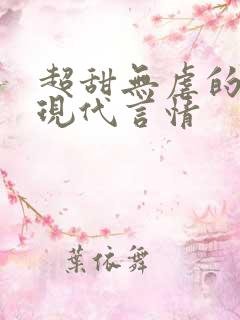 超甜無虐的
現代言情
葉依舞